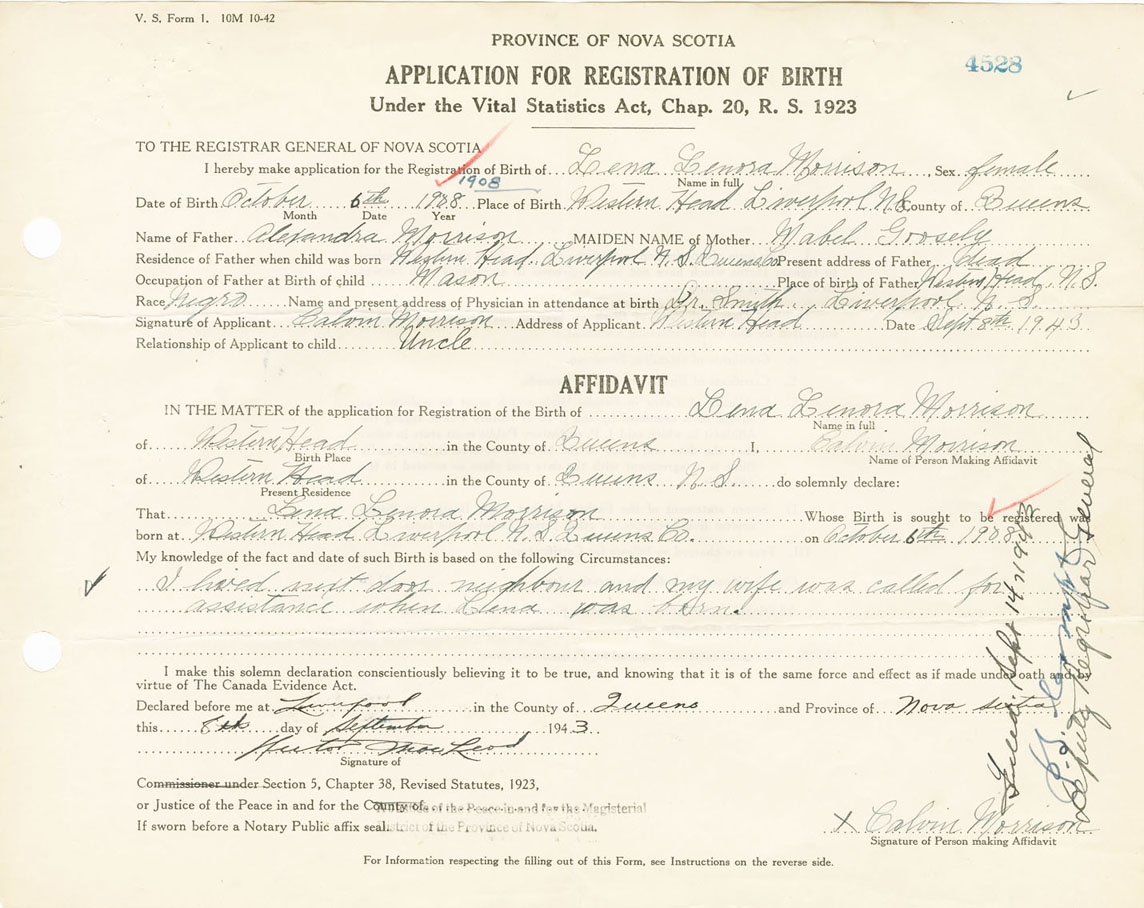 V. S. Form 1. 10M 10-42
PROVINCE OF NOVA SCOTIA
4528
APPLICATION FOR REGISTRATION OF BIRTH
Under the Vital Statistics Act, Chap. 20, R. S. 1923
TO THE REGISTRAR GENERAL OF NOVA SCOTIA
I hereby make application for the Registration of Birth of Lena Lenora Morrison Sex female
Name in full
1908
Date of Birth October 6th 1908 Place of Birth Western Head Liverpool N.S. County of Queens
Month Date Year
Name of Father Alexandra Morrison MAIDEN NAME of Mother Mabel Goosely
Residence of Father when child was born Western Head Liverpool N.S. Queens Co Present address of Father Dead
Occupation of Father at Birth of child Mason Place of birth of Father Western Head N.S.
Race Negro Name and present address of Physician in attendance at birth Dr. Smith. Liverpool N. S.
Signature of Applicant Calvin Morrison Address of Applicant Western Head Date Sept 8th 1943
Relationship of Applicant to child Uncle
AFFIDAVIT
IN THE MATTER of the application for Registration of the Birth of Lena Lenora Morrison
Name in full
of Western Head in the County of Queens I, Calvin Morrison
Birth Place Name of Person Making Affidavit
of Western Head in the County of Queens N. S. do solemnly declare:
Present Residence
That Lena Lenora Morrison Whose Birth is sought to be registered was
born at Western Head Liverpool N. S. Queens Co. on October 6th 1908
My knowledge of the fact and date of such Birth is based on the following Circumstances:
I lived next door neighbour and my wife was called for
assistance when Lena was born.
I make this solemn declaration conscientiously believing it to be true, and knowing that it is of the same force and effect as if made under oath and
virtue of The Canada Evidence Act.
Declared before me at Liverpool in the County of Queens and Province of Nova Scotia
this 8th day of September 1943
Hector MacLeod
Signature of
Commissioner under Section 5, Chapter 38, Revised Statutes, 1923,
or Justice of the Peace in and for the County of of the Peace in and for the Magisterial
If sworn before a Notary Public affix seal. District of the Province of Nova Scotia.
X Calvin Morrison
Signature of Person making Affidavit
For Information respecting the filling out of this Form, see Instructions on the reverse side.
Filed Sept 14, 1943
Deputy Registrar General